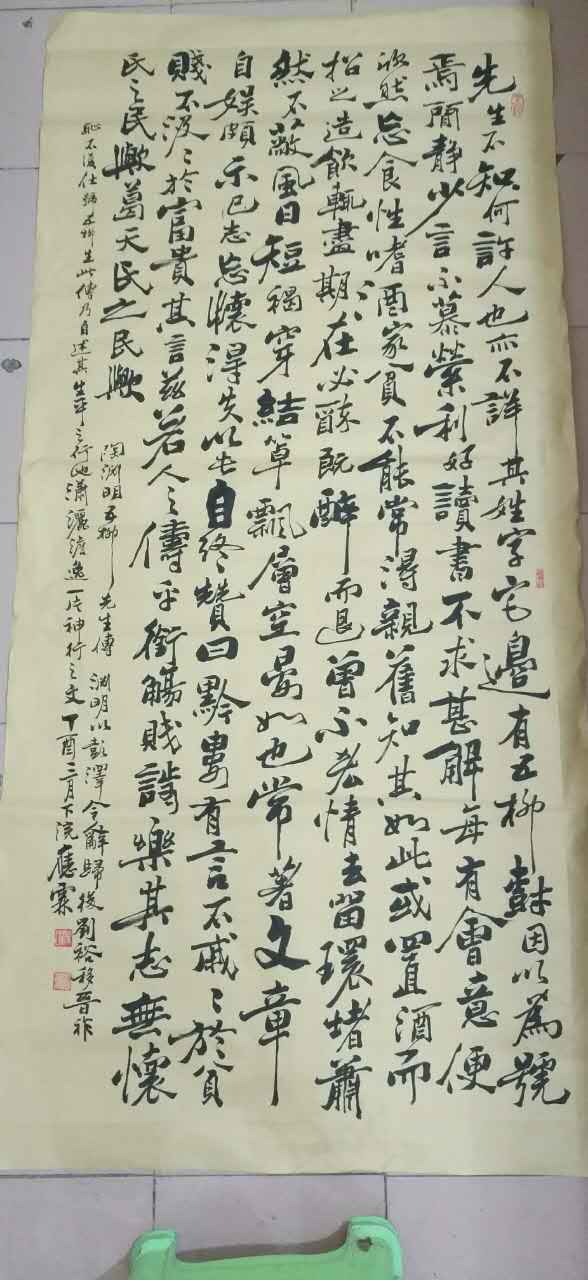 先生不知何許人也亦不詳其姓字宅邊有五柳樹因以為號
焉閑靜少言不慕榮利好讀書不求甚解每有會意便
欣然忘食性嗜酒家貧不能常得親舊知其如此或置酒而
招之造飲輒盡期在必醉既醉而退曾不吝情去留環堵蕭
然不蔽風日短褐穿結簞瓢屢空晏如也常著文章
自娛頗示己志忘懷得失以此自終贊曰黔婁有言不戚〻於貧
賤不汲〻於富貴其言茲若人之儔乎銜觴賦詩樂其志無懷
氏之民歟葛天氏之民歟
陶淵明五柳先生傳 淵明以彭澤令辭歸後劉裕移晉祚
恥不復仕號五柳生此傳乃自述其生平之行也瀟灑澹逸一片神行之文 丁酉二月下浣應霖